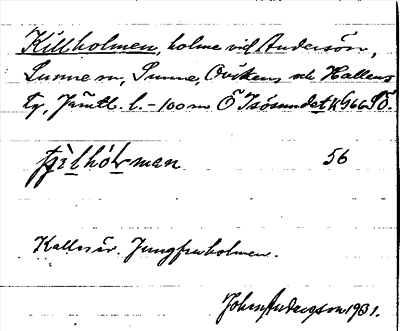 Killholmen, holme vid Andersön,
Sunne sn, Sunne, Ovikens och Hallens
tg, Jämtl. l. – 100 m Ö Isösundet
hó 56
Kallas äv. Jungfruholmen.
John Andersson 1931.